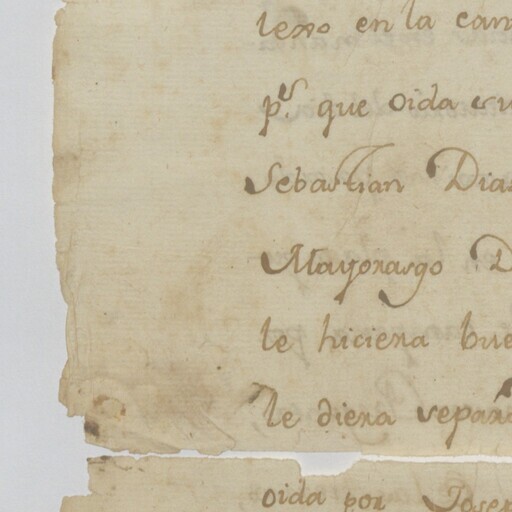 lexo en la cam
p.r que oida su
Sebastian Dias
Mayorasgo D
le hiciera bue
le diera separa
oida por Josep